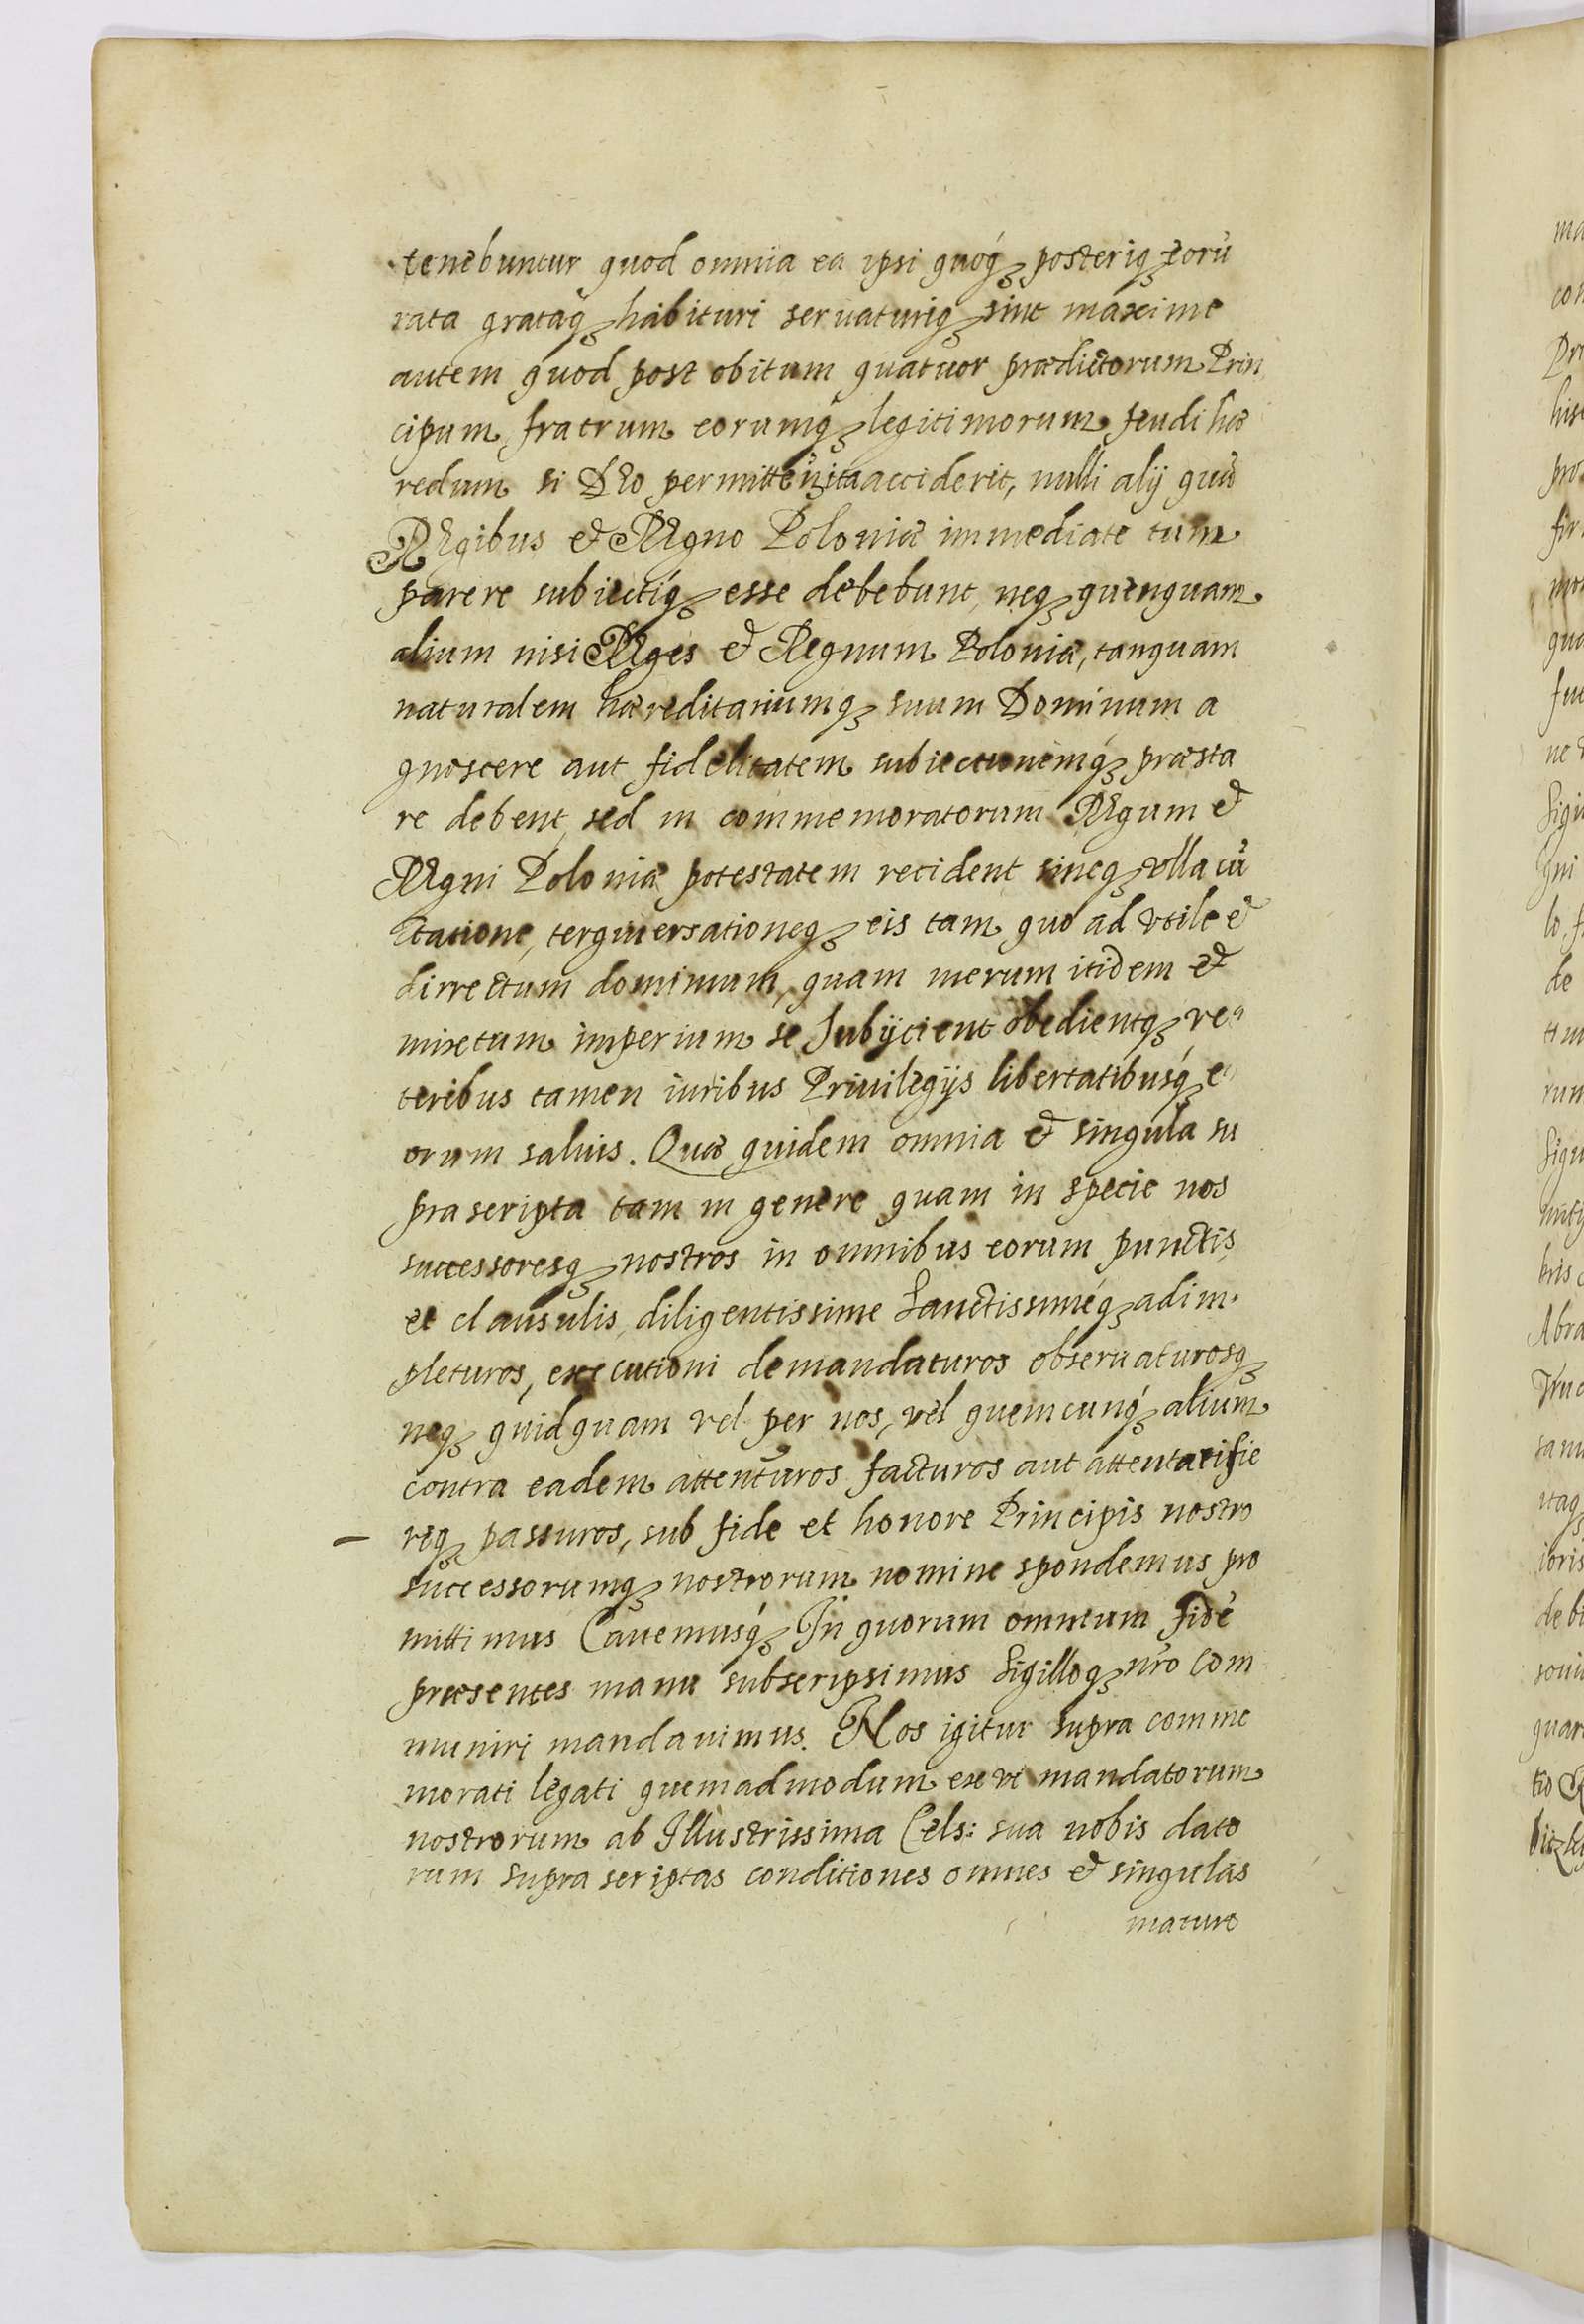 tenebuntur quod omnia ea ipsi quóq; posteriq; eorũ
rata grataq; habituri seruaturiq; sint maxime
autem quod post obitum quatuor prædictorum Prin
cipum fratrum eorumq; legitimorum feudi hæ
redum si Deo permittẽ ita acciderit, nulli alij quã
Regibus et Regno Poloniæ immediate tum
parere subiectiq; esse debebunt, neq; quenquam
alium nisi Reges et Regnum Poloniæ, tanquam
naturalem hæreditariumq; suum Dominum a
gnoscere aut fidelitatem subiectionemq́; præsta
re debent, sed in commemoratorum Regum et
Regni Poloniæ potestatem recident sineq; vlla cũ
ctatione, tergiuersationeq; eis tam quo ad vtile et
dirrectum dominium, quam merum itidem et
mixtum imperium se subijcient obedientq; ve
teribus tamen iuribus Priuilegijs libertatibusq́; e
orum saluis. Quæ quidem omnia et singula su
prascripta tam in genere quam in specie nos
successoresq; nostros in omnibus eorum punctis
et clausulis, diligentissime sanctissimeq́; adim
pleturos, executioni demandaturos obseruaturosq;
neq; quidquam vel per nos, vel quemcunq́; alium
contra eadem attenturos facturos aut attentari fie
req; passuros, sub fide et honore Principis nostro
successorumq; nostrorum nomine spondemus pro
mittimus Cauemusq́; In quorum omnium fidẽ
præsentes manu subscripsimus Sigilloq; nr̃o com
muniri mandauimus. Nos igitur supra comme
morati legati quemadmodum ex vi mandatorum
nostrorum ab Illustrissima Cels: sua nobis dato
rum supra scriptas conditiones omnes et singulas
mature